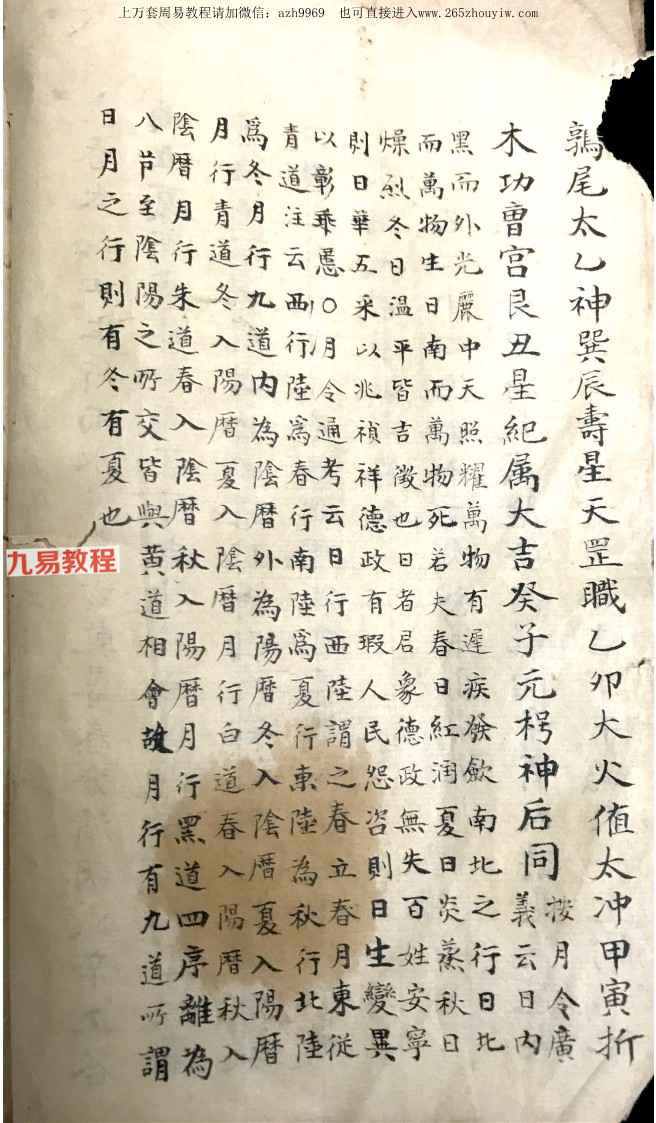 上万套周易教程请加微信：azh9969　也可直接进入www.265zhouyiw.com
鶉尾太乙神巽辰壽星天罡職乙卯大火值太冲甲寅折
木功曺宫艮丑星紀属大吉癸子元枵神后同
按月令廣
義云日内
黑而外光麗中天照耀萬物有遲疾發歛南北之行日北
而萬物生日南而萬物死若夫春日紅润夏日炎蒸秋日
燥烈冬日温平皆吉徵也日者君象德政無失百姓安寧
則日華五采以兆禎祥德政有瑕人民怨咨則日生變異
以彰乖慝〇月令通考云日行西陸謂之春立春月東從
青道注云西行陸爲春行南陸爲夏行東陸為秋行北陸
爲冬月行九道内為陰曆外為陽曆冬入陰曆夏入陽曆
月行青道冬入陽曆夏入陰曆月行白道春入陽曆秋入
陰曆月行朱道春入陰曆秋入陽曆月行黑道四序離為
八节至陰陽之所交皆與黄道相會故月行有九道所謂
日月之行則有冬有夏也
九易教程